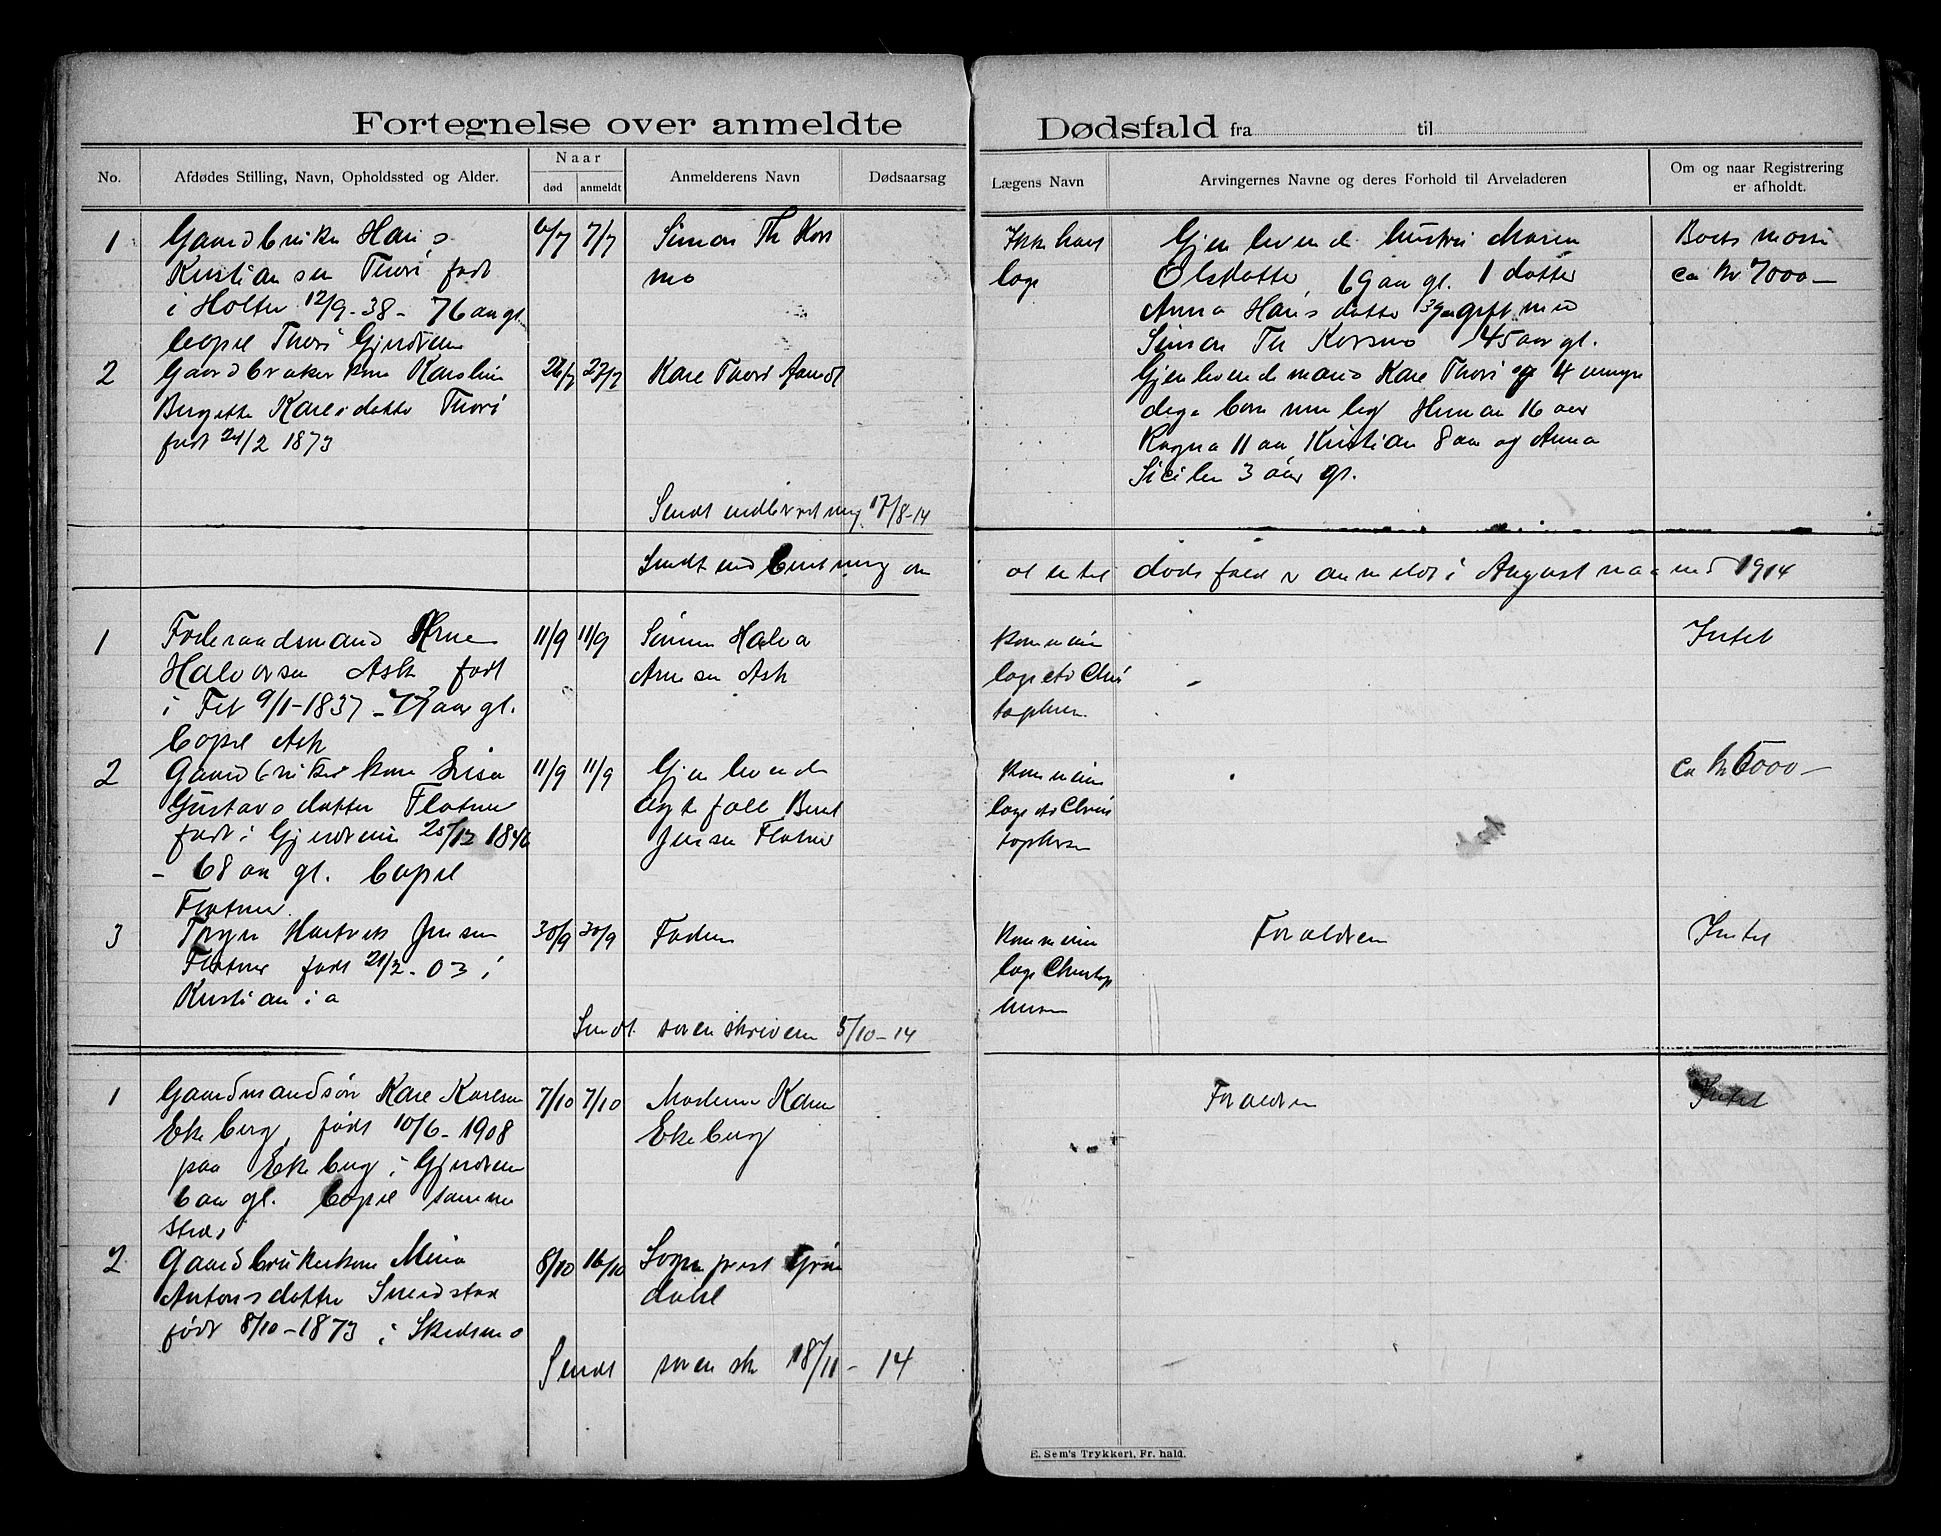 Fortegnelse over anmeldte Dødsfald fra til
No.
Afdødes Stilling, Navn, Opholdssted og Alder.
Naar
død
anmeldt
Anmelderens Navn
Dødsaarsag
Lægens Navn
Arvingernes Navne og deres Forhold til Arveladeren
Om og naar Registrering
er afholdt.
1
Gaardbruker Hans
Kristiansen Thori født
i Holter 12/9-38 - 76 aar gl.
bopel Thori Gjerdrum
6/7 7/7
Simon Th Kors
mo
Ikke havt
læge
Gjenlevende hustru Maren
Olsdatter, 69 aar gl. 1 datter
Anna Hansdatter gift med
Simon Th Korsmo 45 aar gl.
Boets masse
ca kr 7000 —
2
Gaardbruker kone Karoline
Bergette Karlsdatter Thori
født 24/2 1873
26/7 27/7
Kare Thori
Gjenlevende mand Kare Thori og 4 umyn
dige børn nemlig Herman 16 aar
Ragna 11 aar, Kristian 8 aar og Anna
3 aar gl.
Sendt indberetning 17/8-14
Sendt indberetning om
at intet dødsfald er anmeldt i August maaned 1914
1
Foderaadsmand Arne
Halvorsen Ask født
i Fet 9/1-1837 - 77 aar gl.
bopel Ask
11/9 11/9
Sønnen Halvor
Arnesen Ask
Kommune
læge Chris
tophersen
Intet
2
Gaardbruker kone Lisa
Gustavsdatter Flatner
født i Gjerdrum 25/12 1846
- 68 aar gl. bopel
Flatner.
11/9 11/9
Gjenlevende
ægtefælle Bernt
Jensen Flatner
Kommune
læge Chris
tophersen
ca kr 5000 —
3
Hartvik Jensen
Flatner født 21/2-03 i
Kristiania
30/9 30/9
Faderen
Kommune
læge Christop
hersen
Forældrene
Intet
Sendt sorenskriveren 5/10-14
1
Gaardmandsøn Kare Karlsen
Ekeberg, født 10/6-1908
paa Ekeberg i Gjerdrum
6 aar gl. bopel samme
sted
7/10 7/10
Moderen Karen
Ekeberg
Forældrene
Intet
2
Gaardbrukerkone Mina
Antonsdatter Smedstad
født 8/10-1873 i Skedsmo
8/10 16/10
Sogneprest Grøn
dahl
Sendt sorensk 18/11 - 14
E. Sem's Trykkeri, Fr. hald.